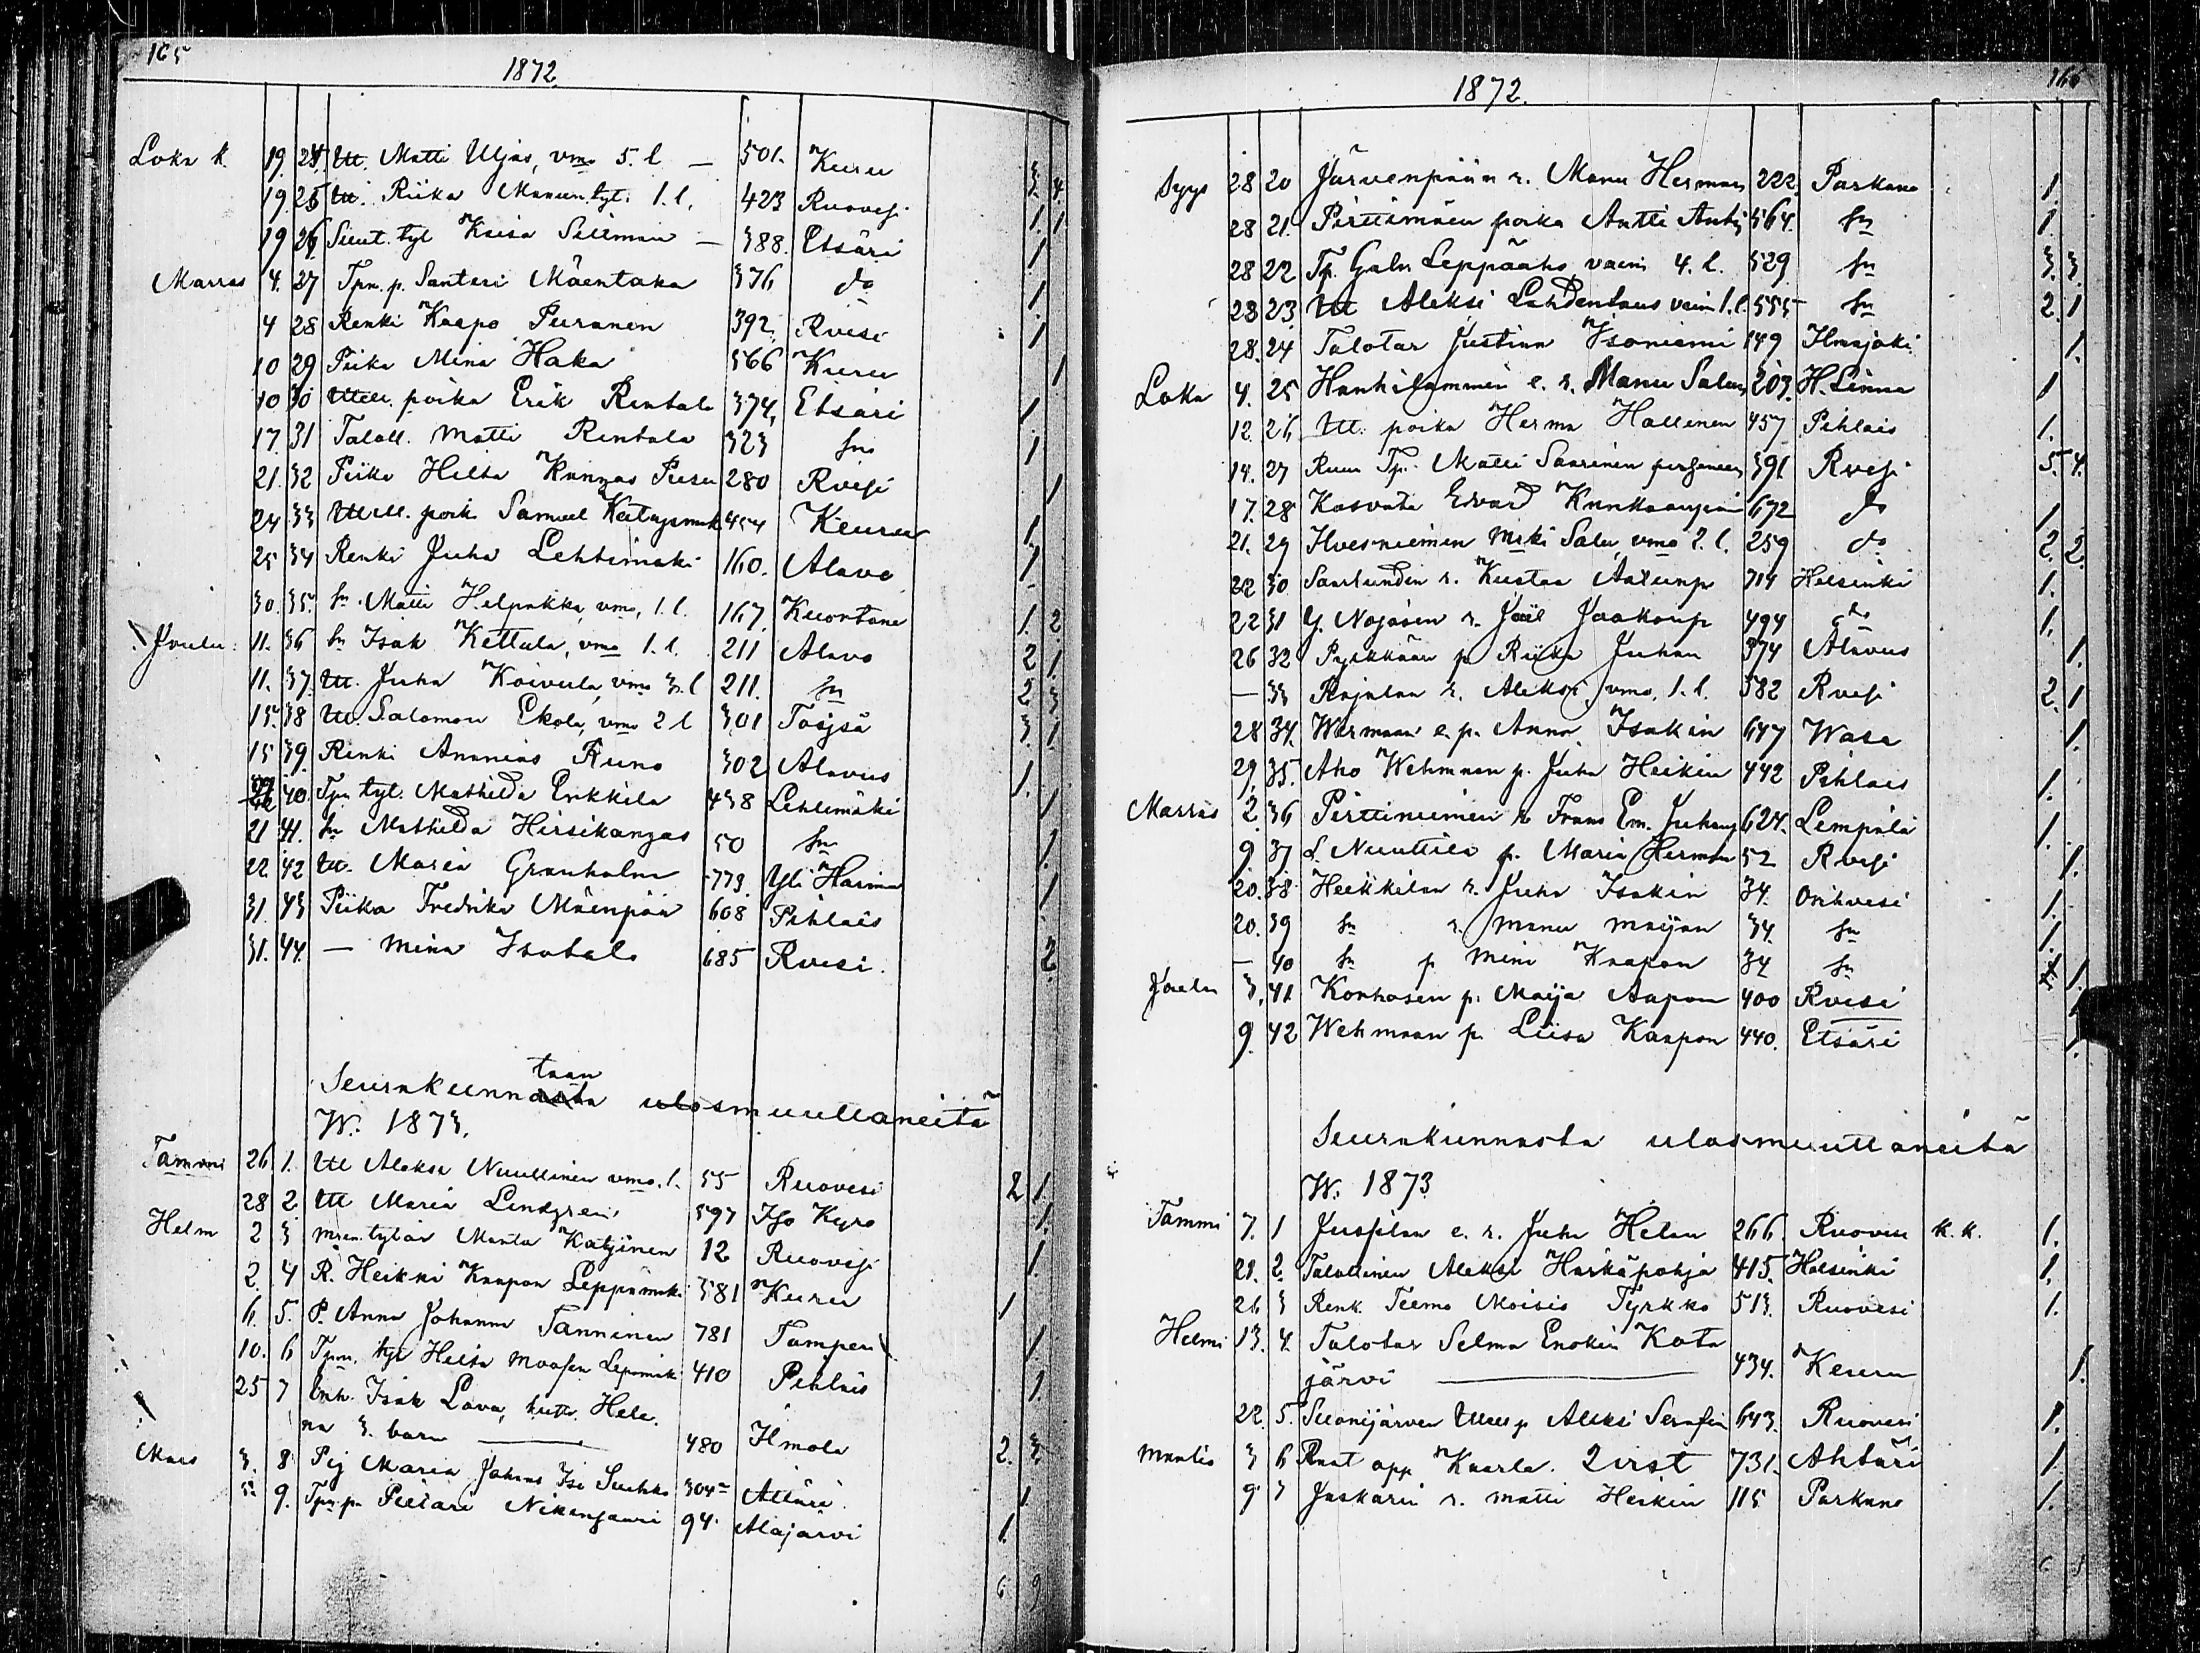 165
1872.
Loka k. 19. 24. Itl. Matti Uljas, vmo 5. l — 501. Kuru 3. 4.
19. 25 Itl. Riika Manun.tyt. 1. l. 423 Ruovesi 1. 1
19 26. tyt Kaisa — 388. Etsäri 1
Marras 4. 27 Tpn. p. Santeri Mäentaka 376 do 1.
4 28 Renki Kaapo Peuranen 392. Rvesi 1
10 29 Piika Mina Haka 566 Kuru 1
10 30 poika Erik Rintala 374, Etsäri 1
17. 31 Taloll. Matti Rintala 323 sm 1
21. 32 Piika Hilta Kangas 280 Rvesi 1
24 33 poik. Samuel 454 Keuruu 1
25 34 Renki Juha Lehtimäki 160. Alavo 1
30. 35. sm Matti Helpakka, vmo, 1. l. 167. Kuortane 1. 2
Joulu: 11. 36 sm Isak Kettula, vmo 1. l. 211 Alavo 2 1.
11. 37. Itl. Juha Koivula, vmo 3. l 211. sm 2 3
15. 38 Itl. Salomon Ekola, vmo 2 l 301 Töysä 3. 1.
15 39. Renki Ananias Runo 302 Alavus 1.
40. Tpn tyt. Mathilda Erkkilä 438 Lehtimäki 1
21 41. sm Mathilda Hirsikangas 50 sm 1.
22 42 Itl. Maria Granholm 779. Yli Härmä 1
31. 43 Piika Fredrika Mäenpää 608 Pihlais
31. 44. — Mina Isotalo 685 Rvesi. 2.
taan
Seurakunnasta ulosmuuttaneita
W. 1873.
Tammi 26 1. Itl Aleksi Nuullinen vmo. l. 55 Ruovesi 2 1.
28 2 Itl Maria Lindgren 597 Iso Kyrö 1.
Helm 2 3 tytär Manta Katjinen 12 Ruovesi 1.
2. 4 R. Heikki Kaapon Leppämäki 581 Kuru 1
6. 5. P. Anna Johanna Tanninen 781 Tamper 1
10. 6 Tpm. tyt Hilta 410 Pihlais 1.
25 7 Isak Lava, hustr. Hele.
na 3. barn — 480 Ilmola 2. 3.
Mars 3. 8 Pig Maria Johans 304 Ätsäri. 1
5. 9. Tpn. p. Pietari 94. Alajärvi 1.
6 9
166
1872.
Syys 28 20 Järvenpään r. Manu Herman 222. Parkano 1.
28 21. Pirttimäen poika Antti Antin 564. sm 1.
28 22 Tp. Leppäaho vaim 4. l. 529 sm 3. 3.
28 23 Itl Aleksi Lahdentaus vaim 1. l. 555 sm 2. 1
28. 24 Talotar Justina Isoniemi 149 Ilmajoki 1.
Loka 4. 25 Hankilammin e. r. Manu Salun 203. H. Linna 1
12. 26 Itl. poika Herma Hallinen 457 Pihlais 1.
14. 27 Tp. Matti Saarinen perheineen 391 Rvesi 5. 4.
17. 28 Kasvata Edvard 672 do 1
21. 29 Ilvesniemen Mki Salu, vmo 2. l. 259 do 2. 2.
22 30 Saarlundin r. Kustaa 714 Helsinki 1.
22 31 Y. Nojosen r. Joeil Jaakonp 494 do 1.
26 32 Pyrkkään p Riika Juhan 374 Alavus 1.
— 33 Rajalan r. Aleksi, vmo, 1. l. 582 Rvesi 2. 1
28 34. Wermaan e. p. Anna Isakin 647 Wasa 1.
29. 35. Aho Wehmaan p. Juha Heikin 442 Pihlais 1.
Marras 2 36 Pirttiniemen r. Frans Em. Juhanp 624. Lempälä 1.
9 37 L. Nuuttila p. Maria Herman 52 Rvesi 1.
20. 38 Heikkilan r. Juha Isakin 34. Orihvesi 1.
20. 39 sm r. Manu Maijan 34. sm 1.
— 40 sm p Mina Kaapon 34 sm 1.
Joulu 3. 41 Korhosen p. Maija Aapon 400 Rvesi 1
9. 42 Wehmaan p. Liisa Kaapon 440. Etsäri 1.
Seurakunnasta ulosmuuttaneita
W. 1873
Tammi 7. 1 Jussilan e. r. Juha Helan 266. Ruovesi k. k. 1.
21. 2. Talollinen Aleksi Härkäpohja 415. Helsinki 1.
26 3 Renk. Teemo Moisio Tyrkkö 513. Ruovesi 1.
Helmi 13. 4. Talotar Selma Enokin Kota
järvi — 434. Keuru 1.
22. 5. Suonijärven p Aleksi Serafin 643. Ruovesi 1.
Maalis 3 6 Kaarla. 731. Ähtäri 1
9 7 Jaskarin r. Matti Heikin 115 Parkano 1.
6 5